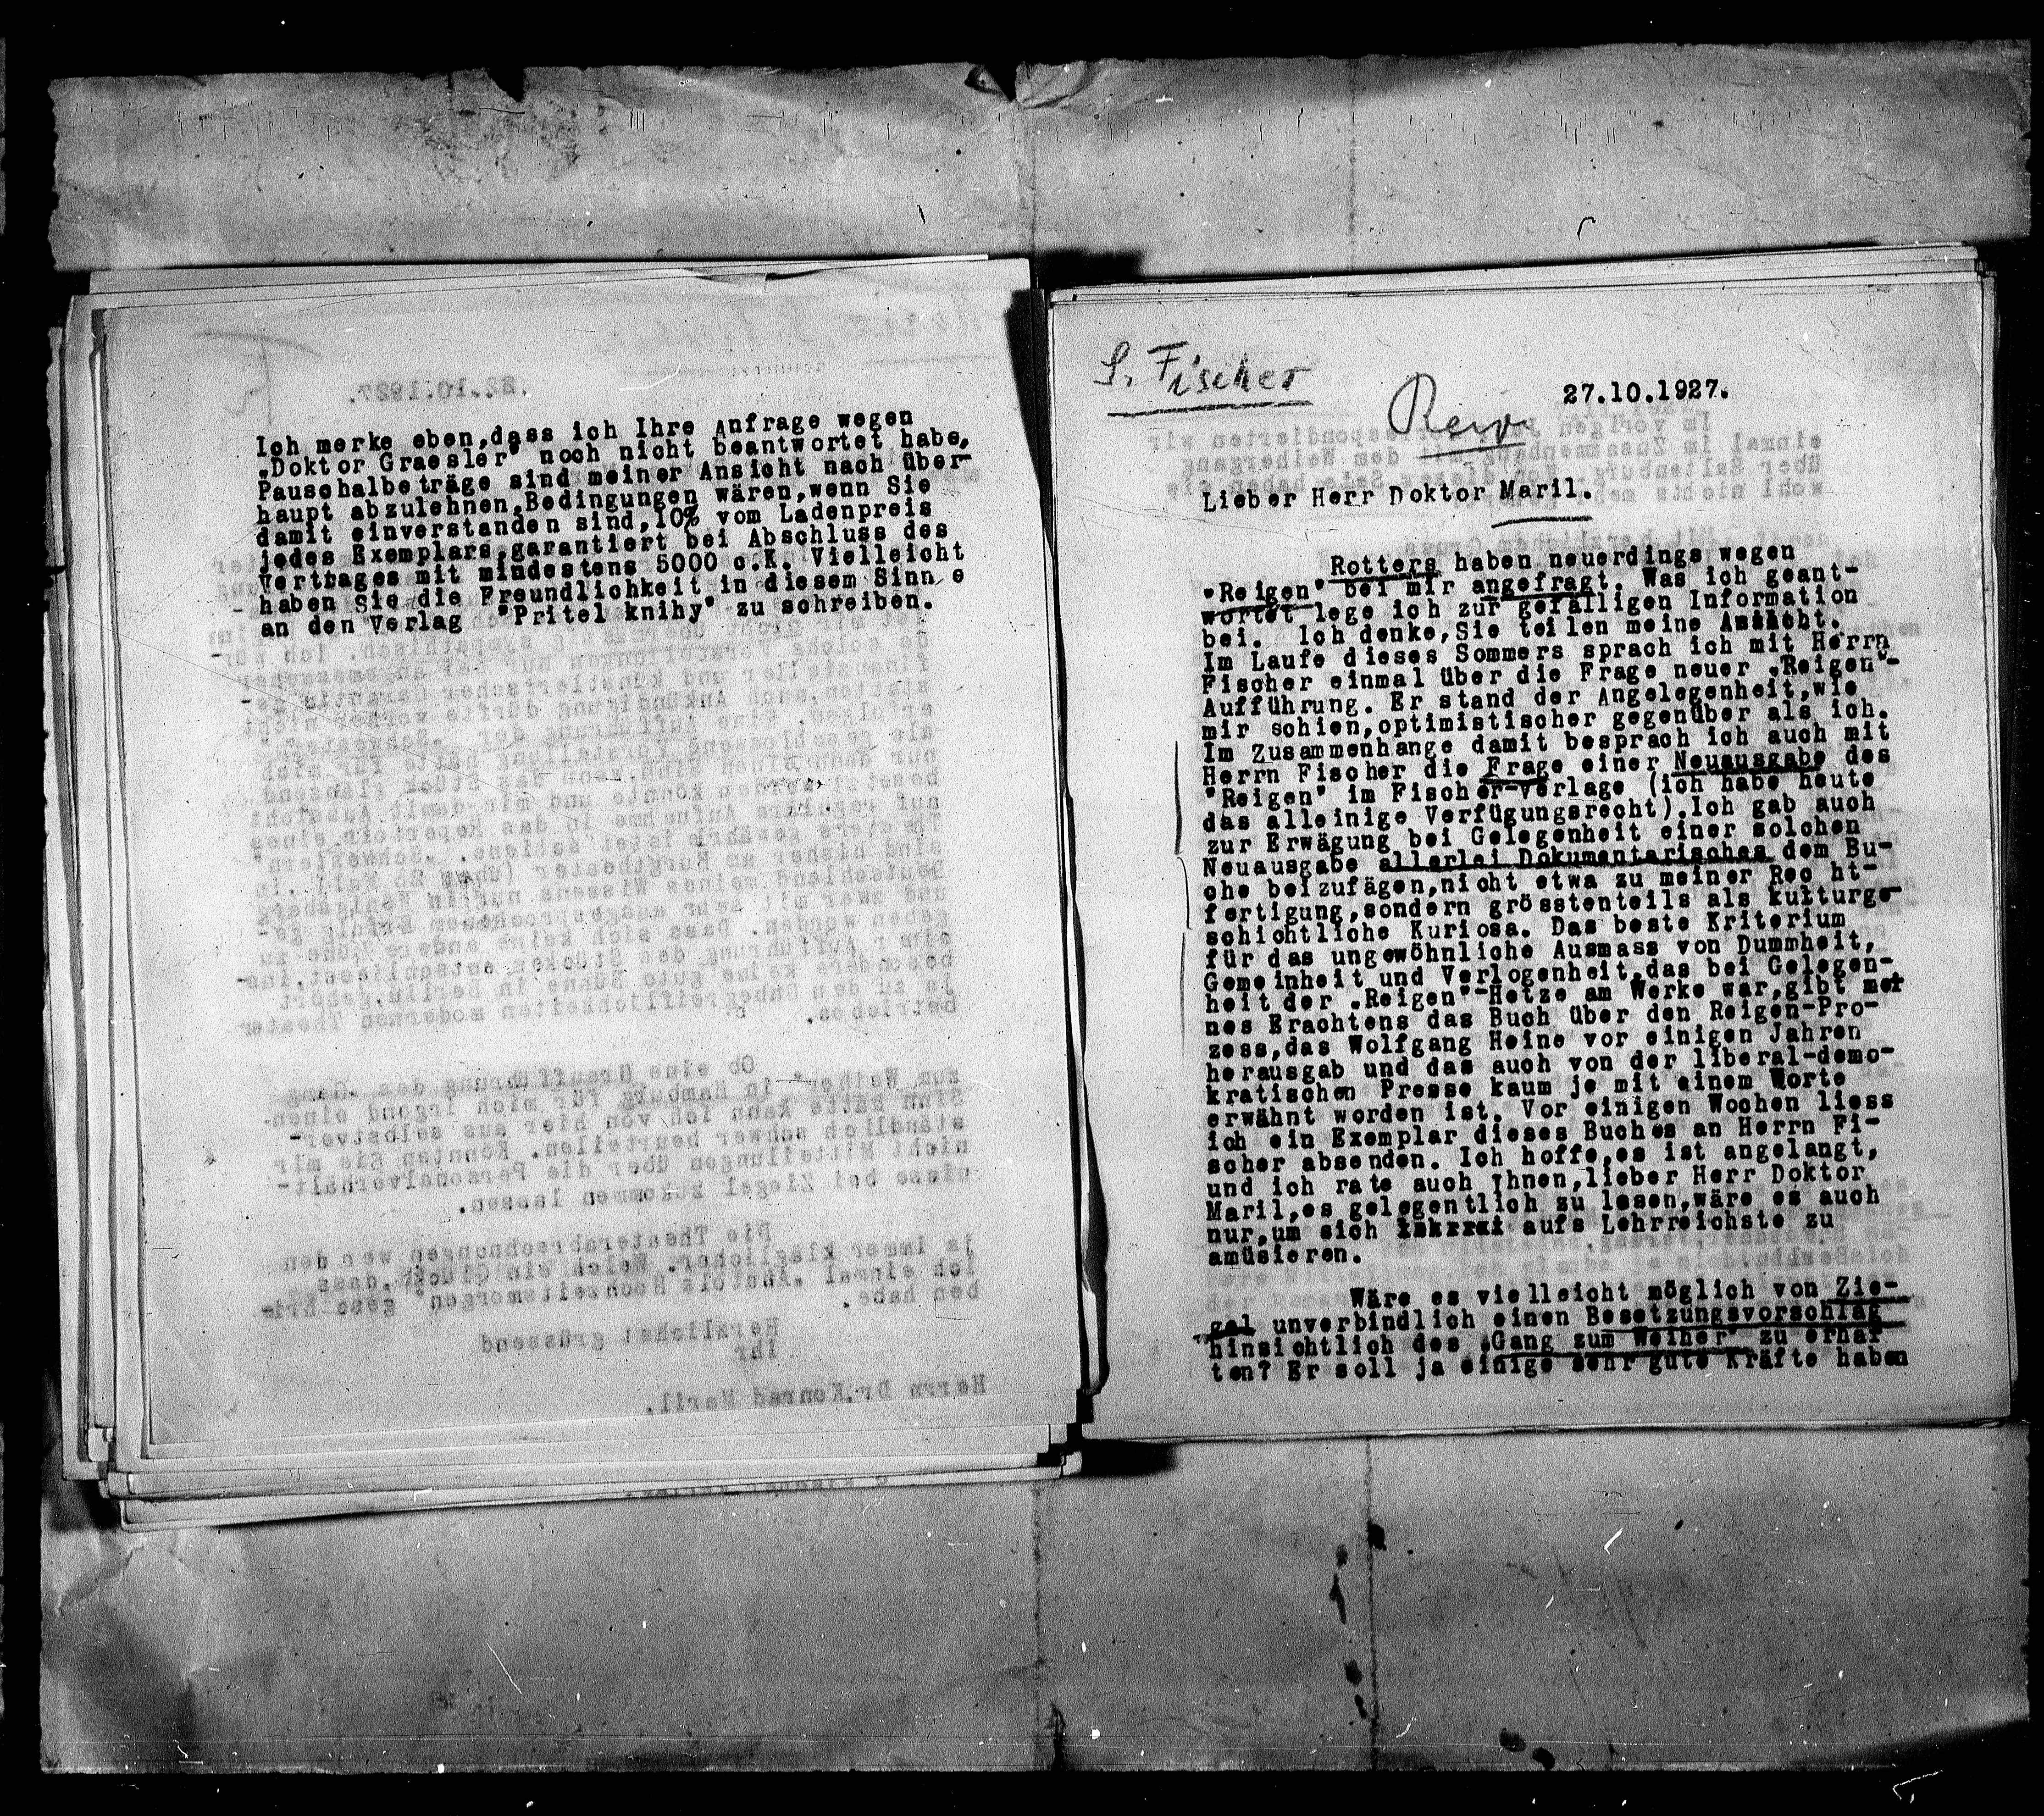 Ich merke eben,dass ich Ihre Anfrage wegen
„Doktor Graesler" noch nicht beantwortet habe.
Pauschalbeträge sind meiner Ansicht nach über-
haupt abzulehnen.Bedingungen wären,wenn Sie
damit einverstanden sind,10% vom Ladenpreis
jedes Exemplars,garantiert bei Abschluss des
Vertrages mit mindestens 5000 c.K. Vielleicht
haben Sie die Freundlichkeit in diesem Sinn e
an den Verlag "Pritel knihy" zu schreiben.
S. Fischer
27.10.1927.
Lieber Herr Doktor Maril.
Rotters haben neuerdings wegen
"Reigen" bei mir angefragt. Was ich geant-
wortet lege ich zur gefälligen Information
bei. Ich denke,Sie teilen meine Ansicht.
Im Laufe dieses Sommers sprach ich mit Herrn
Fischer einmal über die Frage neuer „Reigen"-
Aufführung. Er stand der Angelegenheit,wie
mir schien,optimistischer gegenüber als ich.
Im Zusammenhange damit besprach ich auch mit
Herrn Fischer die Frage einer Neuausgabe des
"Reigen" im Fischer-Verlage (ich habe heute
das alleinige Verfügungsrecht).Ich gab auch
zur Erwägung bei Gelegenheit einer solchen
Neuausgabe allerlei Dokumentarisches dem Bu-
che beizufägen,nicht etwa zu meiner Rec ht-
fertigung,sondern grösstenteils als kulturge-
schichtliche Kuriosa. Das beste Kriterium
für das ungewöhnliche Ausmass von Dummheit,
Gemeinheit und Verlogenheit,das bei Gelegen-
heit der „Reigen"-Hetze am Werke war,gibt mei
nes Erachtens das Buch über den Reigen-Pro-
zess,das Wolfgang Heine vor einigen Jahren
herausgab und das auch von der liberal-demo-
kratischen Presse kaum je mit einem Worte
erwähnt worden ist. Vor einigen Wochen liess
ich ein Exemplar dieses Buches an Herrn Fi-
scher absenden. Ich hoffe,es ist angelangt,
und ich rate auch Ihnen,lieber Herr Doktor
Maril,es gelegentlich zu lesen,wäre es auch
nur,um sich aufs Lehrreichste zu
amüsieren.
Wäre es vielleicht möglich von Zie-
gel unverbindlich einen Besetzungsvorschlag
hinsichtlich des „Gang zum Weiher" zu erhal-
ten? Er soll ja einige sehr gute Kräfte haben